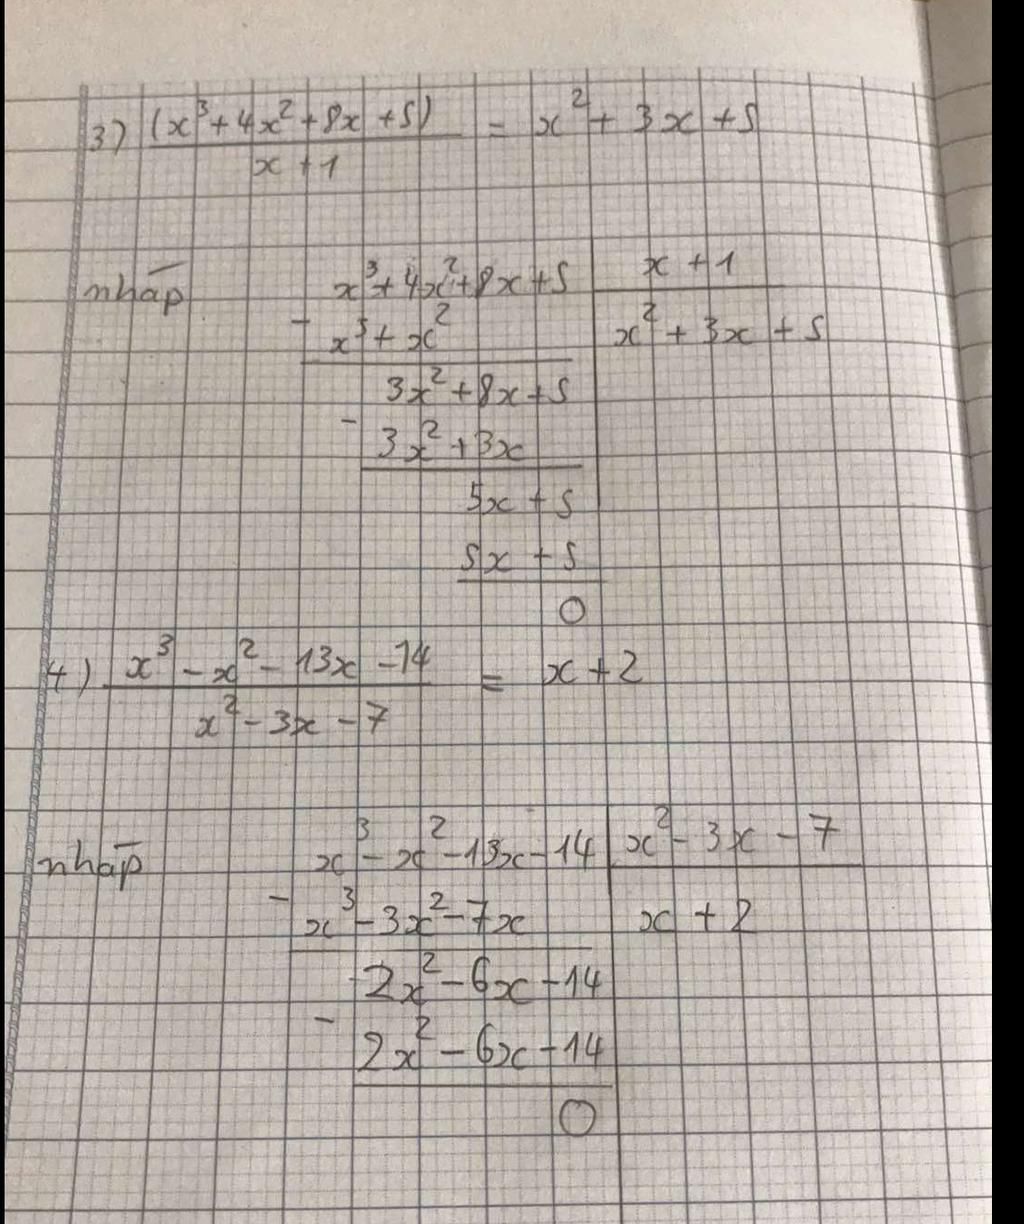 3) (x³ + 4x² + 8x + 5) / x + 1 = x² + 3x + 5
nháp x³ + 4x² + 8x + 5 | x + 1
- x³ + x² | x² + 3x + 5
3x² + 8x + 5
- 3x² + 3x
5x + 5
5x + 5
0
4) x³ - x² - 13x - 14 / x² - 3x - 7 = x + 2
nháp x³ - x² - 13x - 14 | x² - 3x - 7
- x³ - 3x² - 7x | x + 2
2x² - 6x - 14
- 2x² - 6x - 14
0